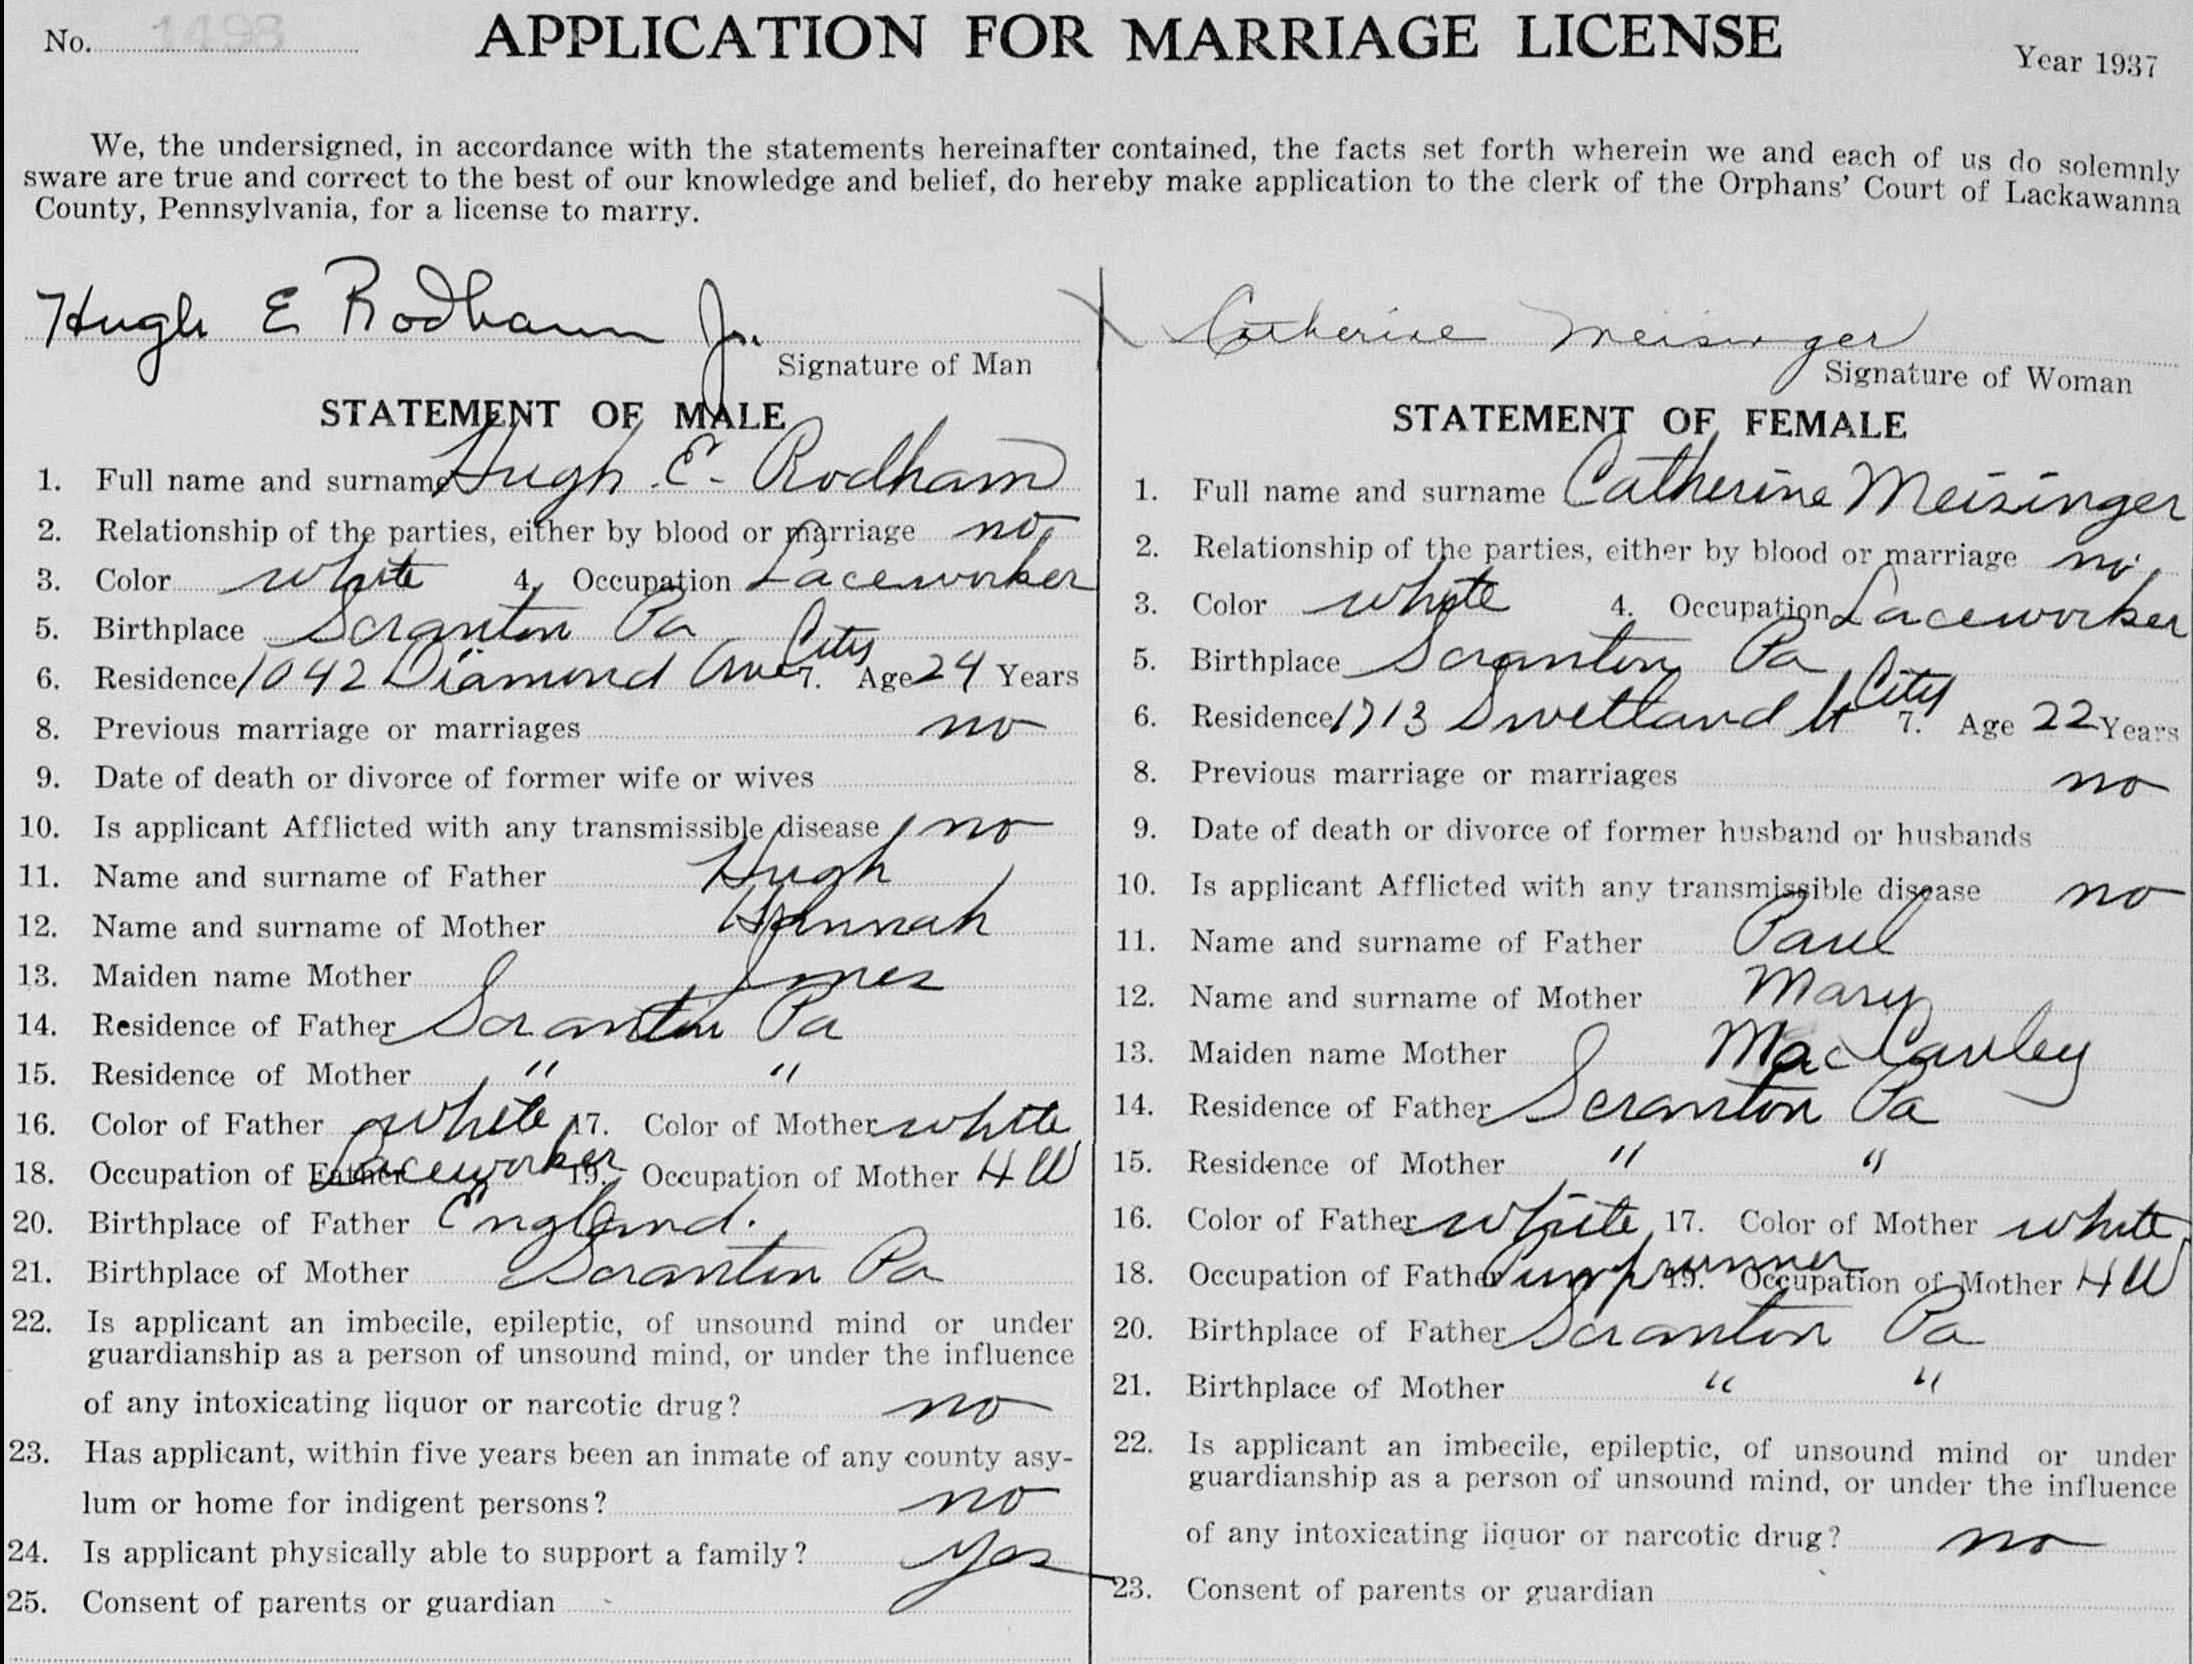 No. 1498
APPLICATION FOR MARRIAGE LICENSE
Year 1937
We, the undersigned, in accordance with the statements hereinafter contained, the facts set forth wherein we and each of us do solemnly
sware are true and correct to the best of our knowledge and belief, do hereby make application to the clerk of the Orphans' Court of Lackawanna
County, Pennsylvania, for a license to marry.
Hugh E Rodham Jr.
Signature of Man
STATEMENT OF MALE
1. Full name and surname Hugh E. Rodham
2. Relationship of the parties, either by blood or marriage no
3. Color white 4. Occupation Laceworker
5. Birthplace Scranton Pa
6. Residence 1042 Diamond Ave City 7. Age 24 Years
8. Previous marriage or marriages no
9. Date of death or divorce of former wife or wives
10. Is applicant Afflicted with any transmissible disease no
11. Name and surname of Father Hugh
12. Name and surname of Mother Hannah
13. Maiden name Mother Jones
14. Residence of Father Scranton Pa
15. Residence of Mother " "
16. Color of Father white 17. Color of Mother white
18. Occupation of Father Laceworker 19. Occupation of Mother HW
20. Birthplace of Father England.
21. Birthplace of Mother Scranton Pa
22. Is applicant an imbecile, epileptic, of unsound mind or under
guardianship as a person of unsound mind, or under the influence
of any intoxicating liquor or narcotic drug? no
23. Has applicant, within five years been an inmate of any county asy-
lum or home for indigent persons? no
24. Is applicant physically able to support a family? yes
25. Consent of parents or guardian
X Catherine Meisinger
Signature of Woman
STATEMENT OF FEMALE
1. Full name and surname Catherine Meisinger
2. Relationship of the parties, either by blood or marriage no
3. Color white 4. Occupation Laceworker
5. Birthplace Scranton Pa
6. Residence 1713 Swetland St City 7. Age 22 Years
8. Previous marriage or marriages no
9. Date of death or divorce of former husband or husbands
10. Is applicant Afflicted with any transmissible disease no
11. Name and surname of Father Paul
12. Name and surname of Mother Mary
13. Maiden name Mother MacCauley
14. Residence of Father Scranton Pa
15. Residence of Mother " "
16. Color of Father white 17. Color of Mother white
18. Occupation of Father Pumprunner 19. Occupation of Mother HW
20. Birthplace of Father Scranton Pa
21. Birthplace of Mother " "
22. Is applicant an imbecile, epileptic, of unsound mind or under
guardianship as a person of unsound mind, or under the influence
of any intoxicating liquor or narcotic drug? no
23. Consent of parents or guardian